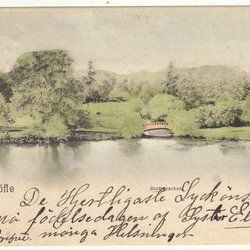 Slottsparken
De Hjertligaste Lycköns
på födelsedagen af Syster El
många Helsningar